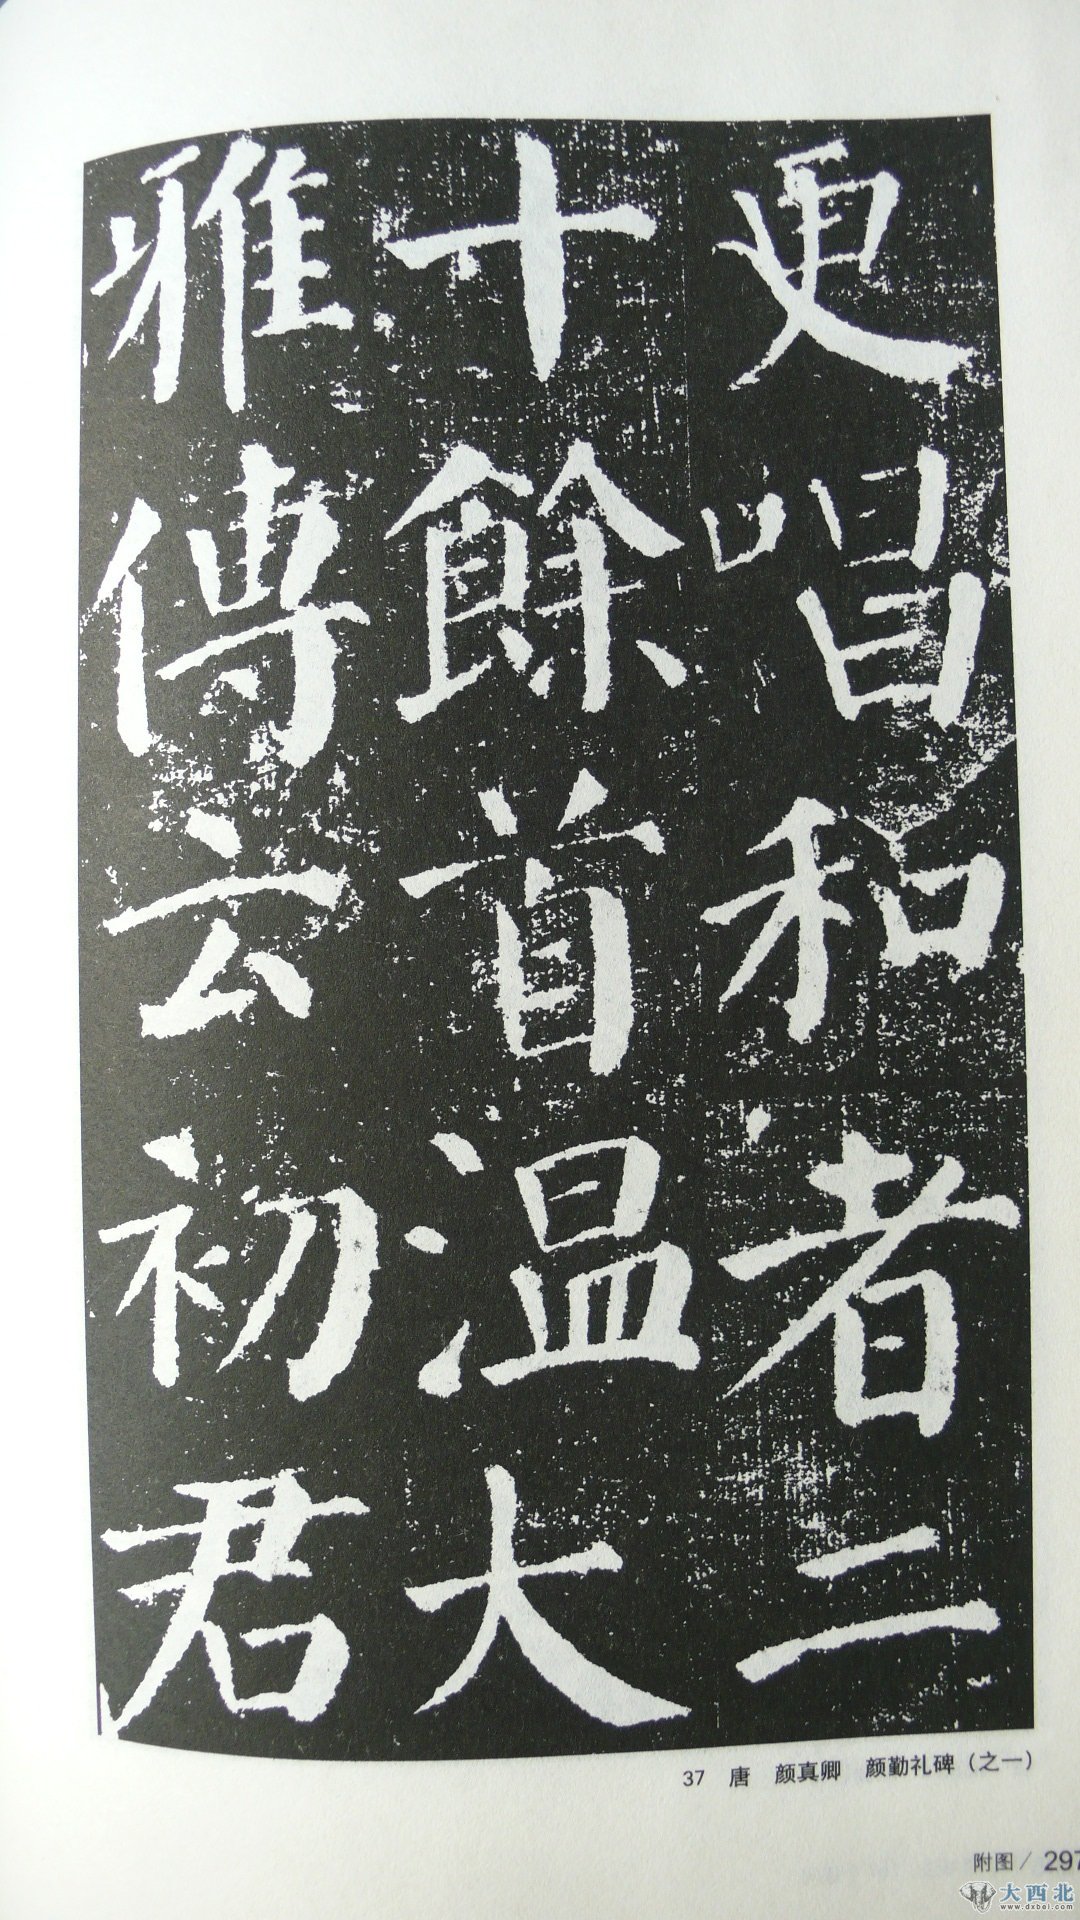 更唱和者二
十餘首温大
雅傳云初君
37 唐 颜真卿 颜勤礼碑（之一）
附图/297
大西北
www.dxbei.com